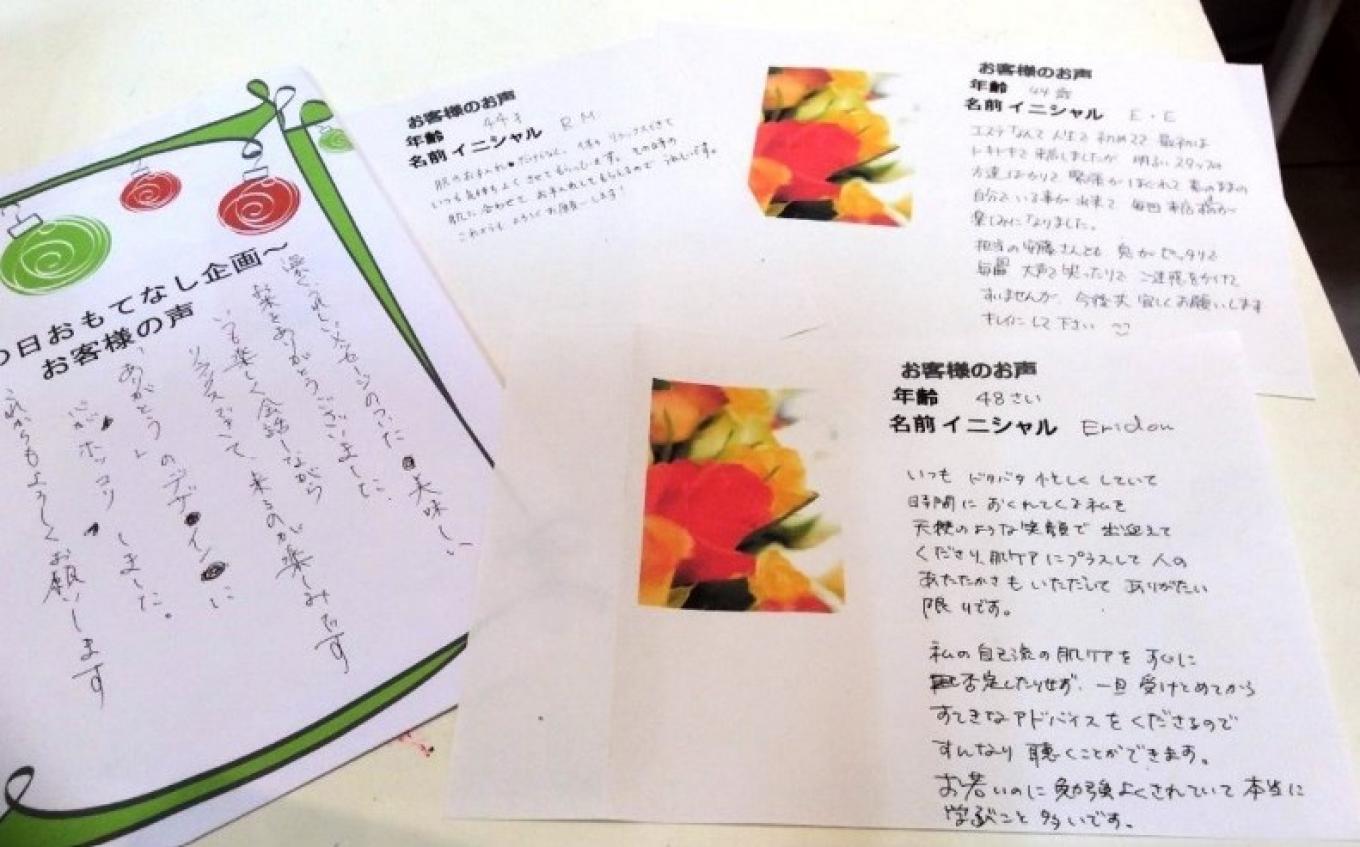 の日おもてなし企画～
お客様の声
温く、うれしいメッセージのついた美味しい
お茶をありがとうございました。
いつも楽しく会話しながら
リラックスできて、来るのが楽しみです
「ありがとう」のデザインに
心がホッコリしました。
これからもよろしくお願いします
お客様のお声
年齢 44才
名前 イニシャル R M
肌のお手入れだけでなく、心も リラックスできて
いつも気持ちよくさせてもらっています。その時の
肌に合わせて お手入れしてもらえるので うれしいです。
これからも よろしくお願いします!
お客様のお声
年齢 44歳
名前 イニシャル E・E
エステなんて人生で初めてで 最初は
ドキドキで来店しましたが 明るいスタッフの
方達ばかりで 緊張がほぐれて 素のままの
自分でいる事が出来て 毎回来店が
楽しみになりました。
担当の安藤さんとも 息がピッタリで
毎回 大声で笑ったりで ご迷惑をかけて
すいませんが、今後共 宜しくお願いします
キレイにして下さい
お客様のお声
年齢 48さい
名前 イニシャル Eridon
いつも ドタバタ 忙しくしていて
時間に おくれてくる私を
天使のような笑顔で 出迎えて
くださり、肌ケアにプラスして 人の
あたたかさも いただいて ありがたい
限りです。
私の自己流の肌ケアを すぐに
否定したりせず、一旦 受けとめてから
すてきなアドバイスをくださるので
すんなり 聴くことができます。
お若いのに 勉強よくされていて 本当に
学ぶこと 多いです。